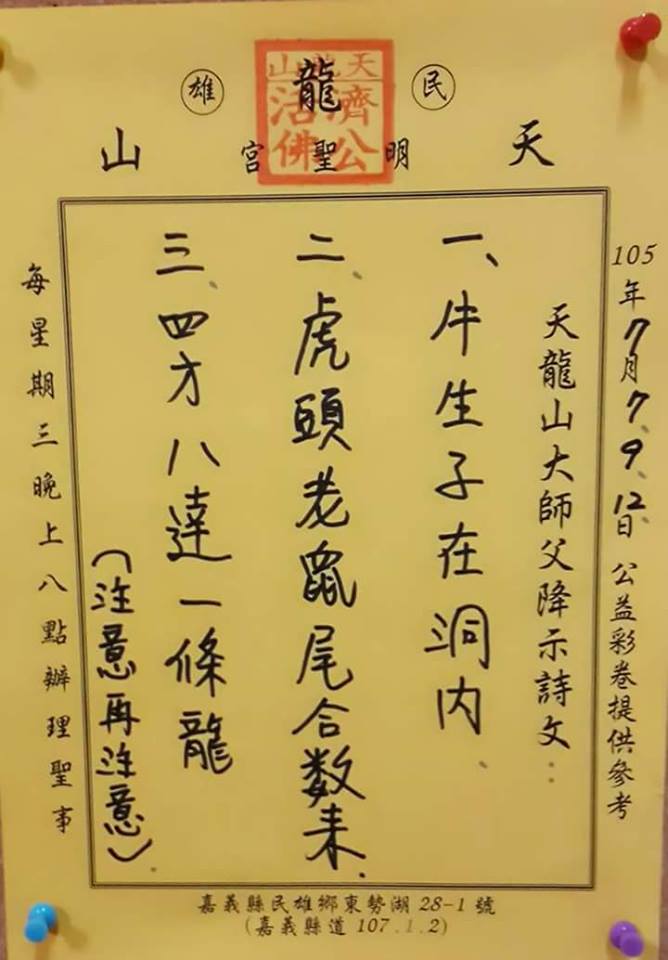 民雄
天龍山
明聖宮
天龍山
濟公
活佛
105年7月7、9、12日 公益彩卷提供參考
天龍山大師父降示詩文：
一、牛生子在洞内、
二、虎頭老鼠尾合数来、
三、四方八達一條龍
（注意再注意）、
每星期三晚上八點辦理聖事
嘉義縣民雄鄉東勢湖 28-1 號
(嘉義縣道 107.1.2)